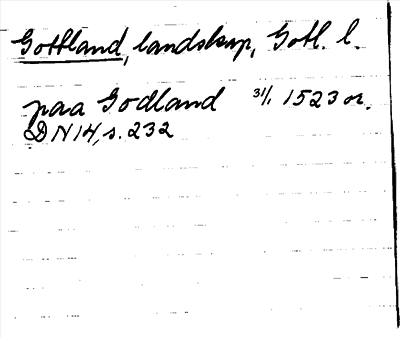 Gottland, landskap, Gotl. l.
paa Godland 31/1 1523 or.
DN 14, s. 232